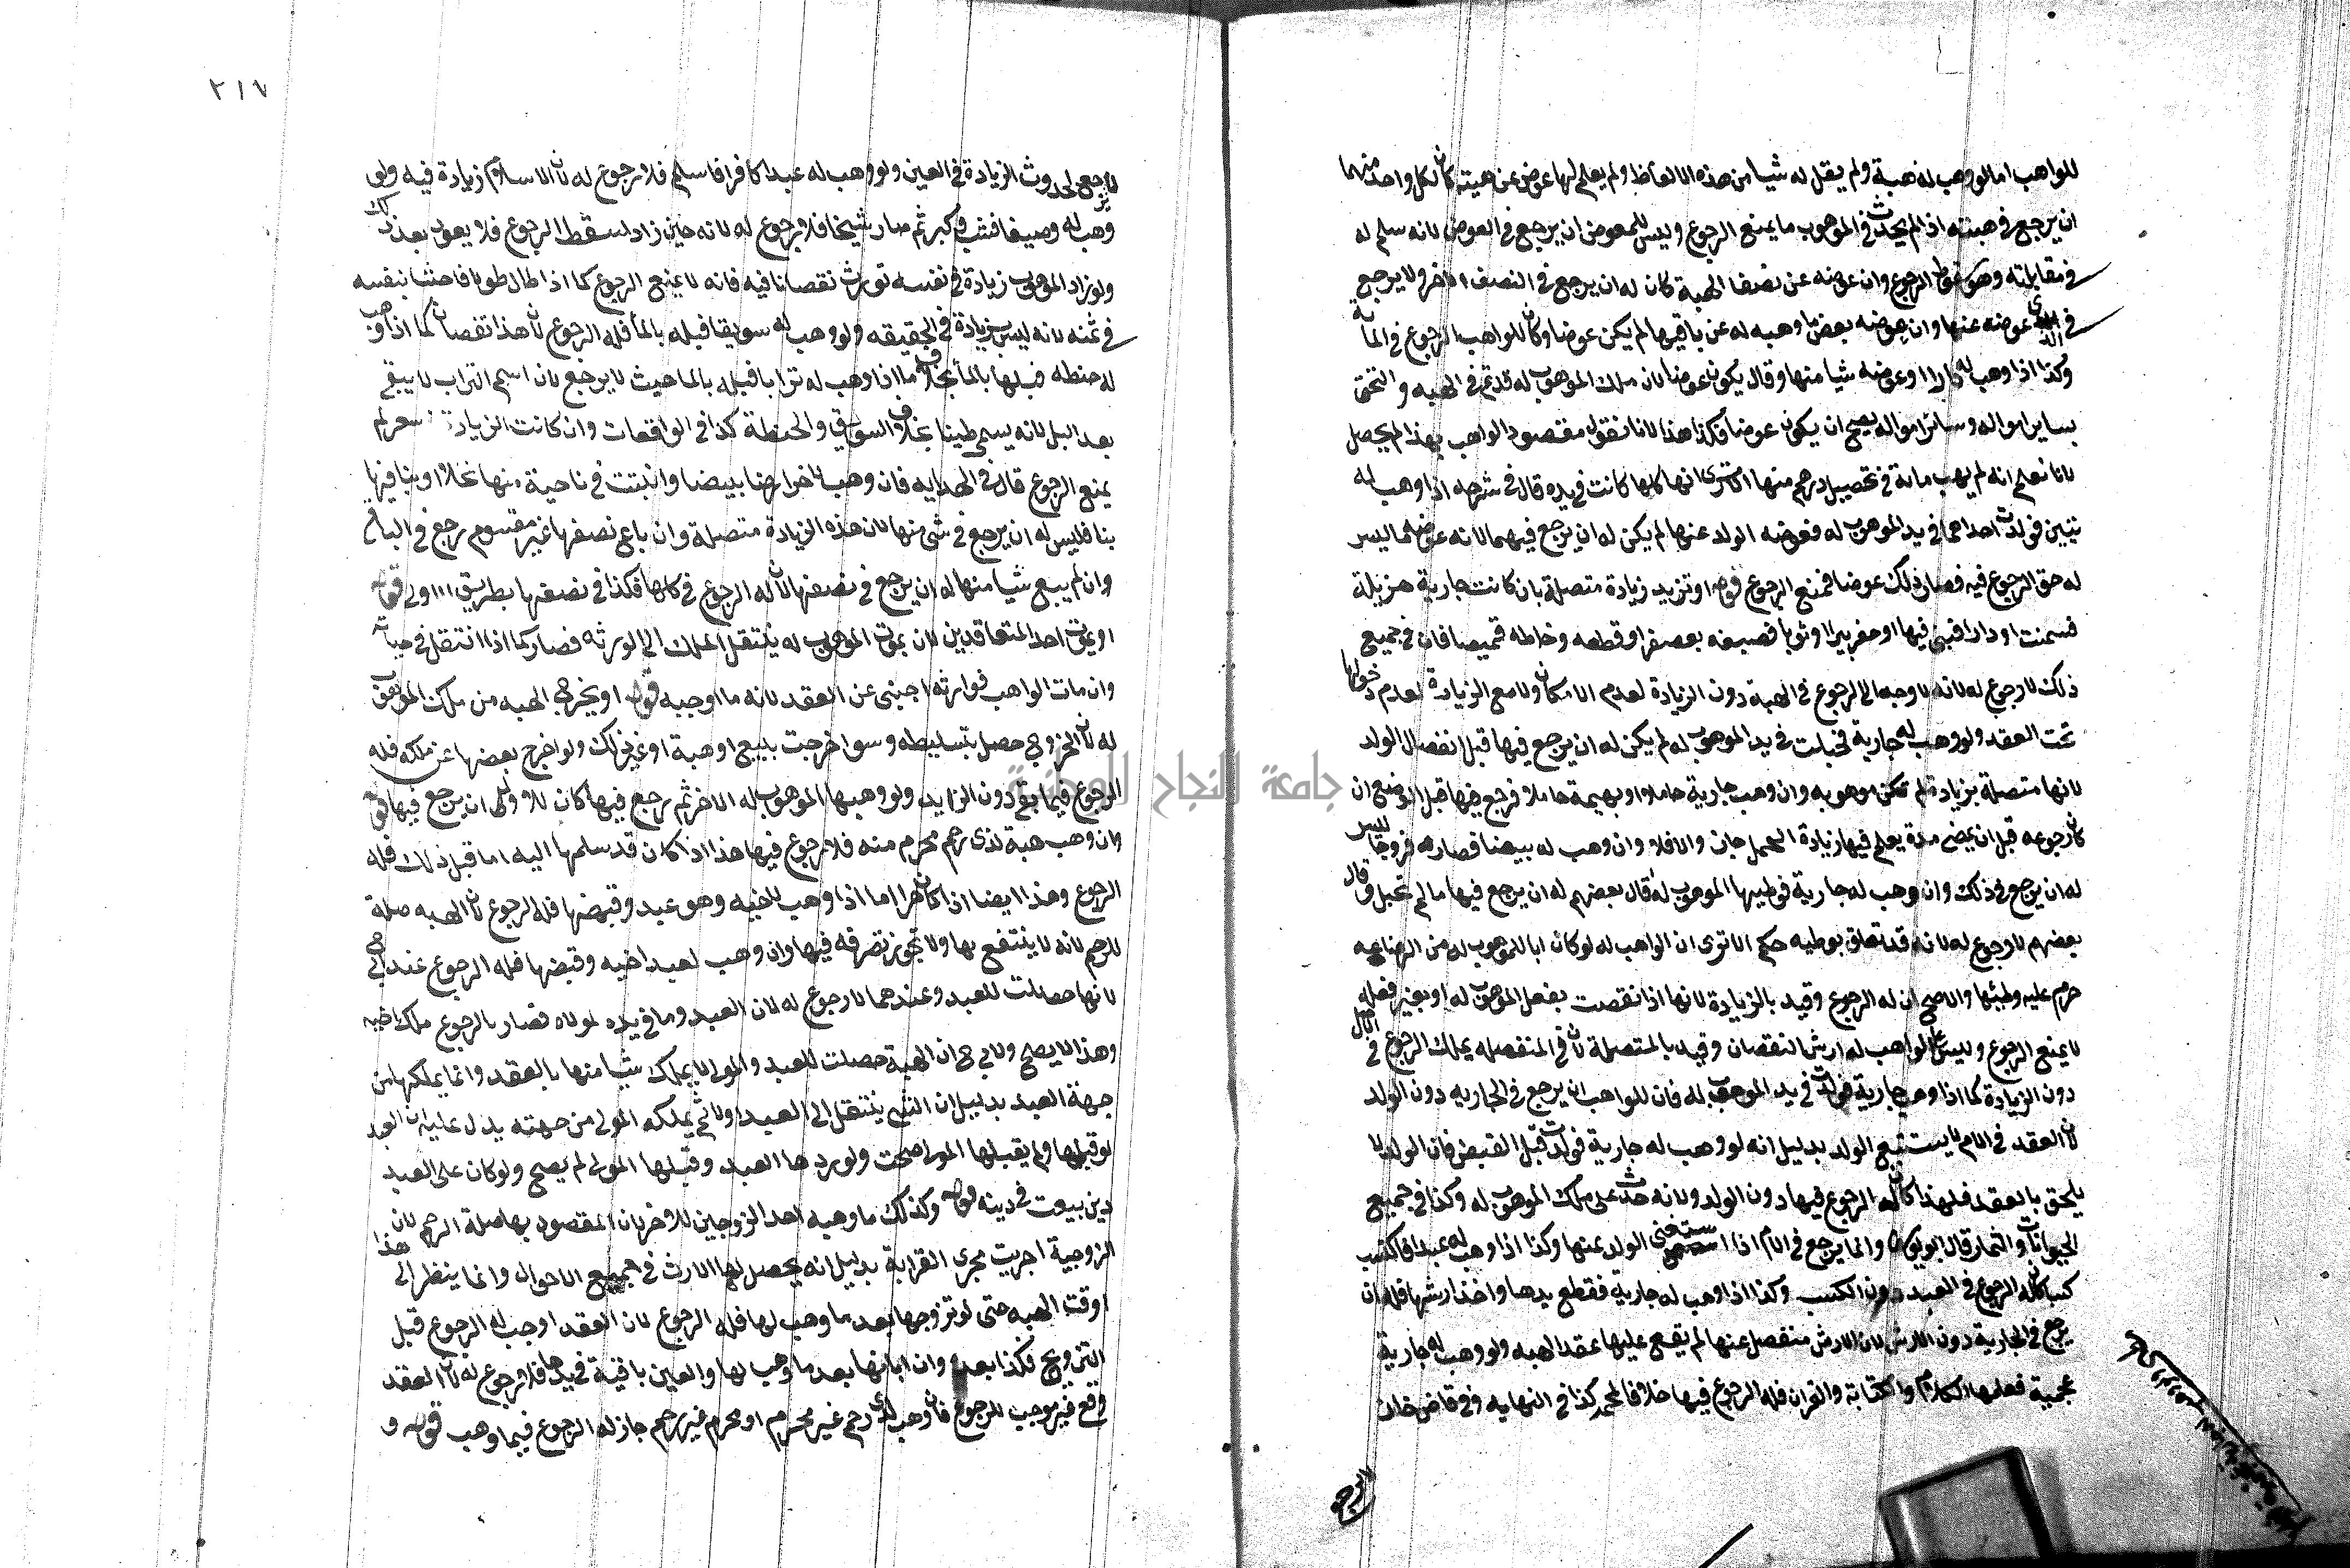 للواهب اما لو وهب له هبة ولم يقل له شيا من هذه الالفاظ ولم يعلم انها عوض عن هبته كان لكل واحد منهما
ان يرجع في هبته اذا لم يحدث في الموهوب ما يمنع الرجوع وليس للمعوض ان يرجع في العوض لانه سلم له
في مقابلته وهو سقوط الرجوع وان عوضه عن نصف الهبة كان له ان يرجع في النصف الاخر ولا يرجع
في الذي عوضه عنها وان عوضه بعض ما وهبه له عن باقيها لم يكن عوضا وكان للواهب الرجوع في
وكذا اذا وهب له دارا وعوضه شيا منها وقال يكون عوضا لان ملك الموهوب له قد تم في الهبه والتحق
بساير امواله وسائر امواله يصح ان يكون عوضا فكذا هذا لانا نقول مقصود الواهب بهذا لم يحصل
لانا نعلم انه لم يهب مائة في تحصيل درهم منها الا ترى انها كلها كانت في يده قال في شرحه اذا وهب له
فولدت احداهما في يد الموهوب له فعوضه الولد عنها لم يكن له ان يرجع فيهما لانه عوضه ما ليس
له حق الرجوع فيه فصار ذلك عوضا فمنع الرجوع قوله او تزيد زيادة متصلة بان كانت جارية هزيلة
فسمنت او دارا فبنى فيها او ثوبا فصبغه بعصفر او قطعه وخاطه قميصا فان في جميع
ذلك لا رجوع له لانه لا وجه الى الرجوع في الهبة دون الزيادة لعدم الامكان ولا مع الزيادة لعدم دخولها
تحت العقد ولو وهب له جارية فحبلت في يد الموهوب له لم يكن له ان يرجع فيها قبل انفصال الولد
لانها متصلة بزيادة لم تكن موهوبه وان وهب جارية حاملا او بهيمة حاملا فرجع فيها قبل الوضع ان
كان رجوعه قبل ان يمضي مدة يعلم فيها زيادة الحمل جاز والا فلا وان وهب له بيضا فصار فروجا ليس
له ان يرجع في ذلك وان وهب له جارية فوطيها الموهوب له قال بعضهم له ان يرجع فيها ما لم تحبل وقال
بعضهم لا رجوع له لانه قد تعلق بوطيه حكم الا ترى ان الواهب له لو كان ابا للموهوب له من الرضاعه
حرم عليه وطئها والاصح ان له الرجوع وقيد بالزيادة لانها اذا نقصت بفعل الموهوب له او بغير فعله
لا يمنع الرجوع وليس على الواهب له ارش النقصان وقيد بالمتصلة لان في المنفصله يملك الرجوع في الاصل
دون الزيادة كما اذا وهب جارية فولدت في يد الموهوب له فان للواهب ان يرجع في الجاريه دون الولد
لان العقد في الام لا يستتبع الولد بدليل انه لو وهب له جارية فولدت قبل القبض فان الولد لا
يلحق بالعقد فلهذا كان له الرجوع فيها دون الولد ولانه حدث على ملك الموهوب له وكذا في جميع
الحيوانات والثمار قال ابو يوسف وانما يرجع في الام اذا استغنى الولد عنها وكذا اذا وهب له عبدا فاكتسب
كسبا كان له الرجوع في العبد دون الكسب وكذا اذا وهب له جارية فقطع يدها واخذ ارشها فله ان
يرجع في الجارية دون الارش لان الارش منفصل عنها لم يقع عليها عقد الهبه ولو وهب له جارية
عجمية فعلمها الكلام والكتابة والقران فله الرجوع فيها خلافا لمحمد كذا في النهايه وفي قاضي خان
٢١٧
لا يرجع لحدوث الزيادة في العين ولو وهب له عبدا كافرا فاسلم فلا رجوع له لان الاسلام زيادة فيه ولو
وهب له وصيفا فشب وكبر ثم صار شيخا فلا رجوع له لانه حين زاد سقط الرجوع فلا يعود بعد ذلك
ولو زاد الموهوب زيادة في نفسه تورث نقصانا فيه فانه لا يمنع الرجوع كما اذا طال طولا فاحشا بنقصه
في ثمنه لانه ليس بزيادة في الحقيقه ولو وهب له سويقا فبله بالما فله الرجوع لان هذا نقصان كما اذا وهب
له حنطه فبلها بالما بخلاف ما اذا وهب له ترابا فبله بالما حيث لا يرجع لان اسم التراب لا يبقى
بعد البل لانه يسمى طينا بخلاف السويق والحنطة كذا في الواقعات وان كانت الزيادة سعر لم
يمنع الرجوع قال في الهدايه فان وهب لاخر ارضا بيضا وانبتت في ناحية منها نخلا او بنا فيها
بنا فليس له ان يرجع في شي منها لان هذه الزيادة متصلة وان باع نصفها غير مقسوم رجع في الباقي
وان لم يبع شيا منها له ان يرجع في نصفها لان له الرجوع في كلها فكذا في نصفها بطريق الاولى قوله
او يموت احد المتعاقدين لان بموت الموهوب له ينتقل الملك الى الورثه فصار كما اذا انتقل في حياته
وان مات الواهب فوارثه اجنبي عن العقد لانه ما اوجبه قوله او يخرج الهبه من ملك الموهوب
له لان الخروج حصل بتسليطه وسوا خرجت ببيع او هبة او غير ذلك ولو اخرج بعضها عن ملكه فله
الرجوع فيما بقي دون الزايد ولو وهبها الموهوب له لاخر ثم رجع فيها كان للاول ان يرجع فيها قوله
وان وهب هبة لذي رحم محرم منه فلا رجوع فيها هذا اذا كان قد سلمها اليه اما قبل ذلك فله
الرجوع وهذا ايضا اذا كان حرا اما اذا وهب لاخيه وهو عبد وقبضها فله الرجوع لان الهبه صلة
للرحم لانه لا ينتفع بها ولا يجوز تصرفه فيها وان وهب لعبد اخيه وقبضها فله الرجوع عند ابي ح
لانها حصلت للعبد وعندهما لا رجوع له لان العبد وما في يده لمولاه فصار بالرجوع ملك اخيه
وهذا لا يصح ولابي ح ان الهبة حصلت للعبد والمولى لا يملك شيا منها بالعقد وانما يملكها من
جهة العبد بدليل ان الشي ينتقل الى العبد اولا ثم يملكه المولى من جهته يدل عليه ان العبد
لو قبلها ولم يقبلها المولى صحت ولو ردها العبد وقبلها المولى لم يصح ولو كان على العبد
دين بيعت في دينه قوله وكذلك ما وهبه احد الزوجين للاخر لان المقصود بها صلة الرحم لان
الزوجية اجريت مجرى القرابة بدليل انه يحصل لها الارث في جميع الاحوال وانما ينظر الى هذا
وقت الهبه حتى لو تزوجها بعد ما وهب لها فله الرجوع لان العقد اوجب له الرجوع قبل
التزويج فكذا بعده وان ابانها بعد ما وهب لها والعين باقية في يدها فلا رجوع له لان العقد
وقع غير موجب للرجوع فان وهب لذي رحم غير محرم او محرم غير رحم جاز له الرجوع فيما وهب قوله و